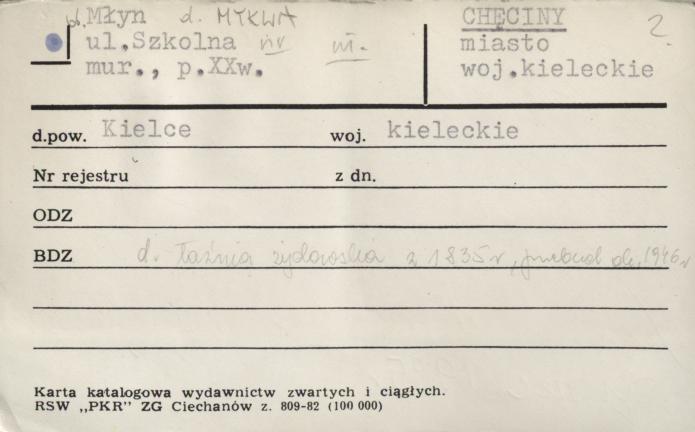 Młyn d. MYKWA
ul.Szkolna nr
mur., p.XXw.
CHĘCINY 2.
miasto
woj.kieleckie
d.pow. Kielce woj. kieleckie
Nr rejestru z dn.
ODZ
BDZ d. łaźnia żydowska z 1835 r, przebud ok. 1946 r
Karta katalogowa wydawnictw zwartych i ciągłych.
RSW „PKR" ZG Ciechanów z. 809-82 (100 000)